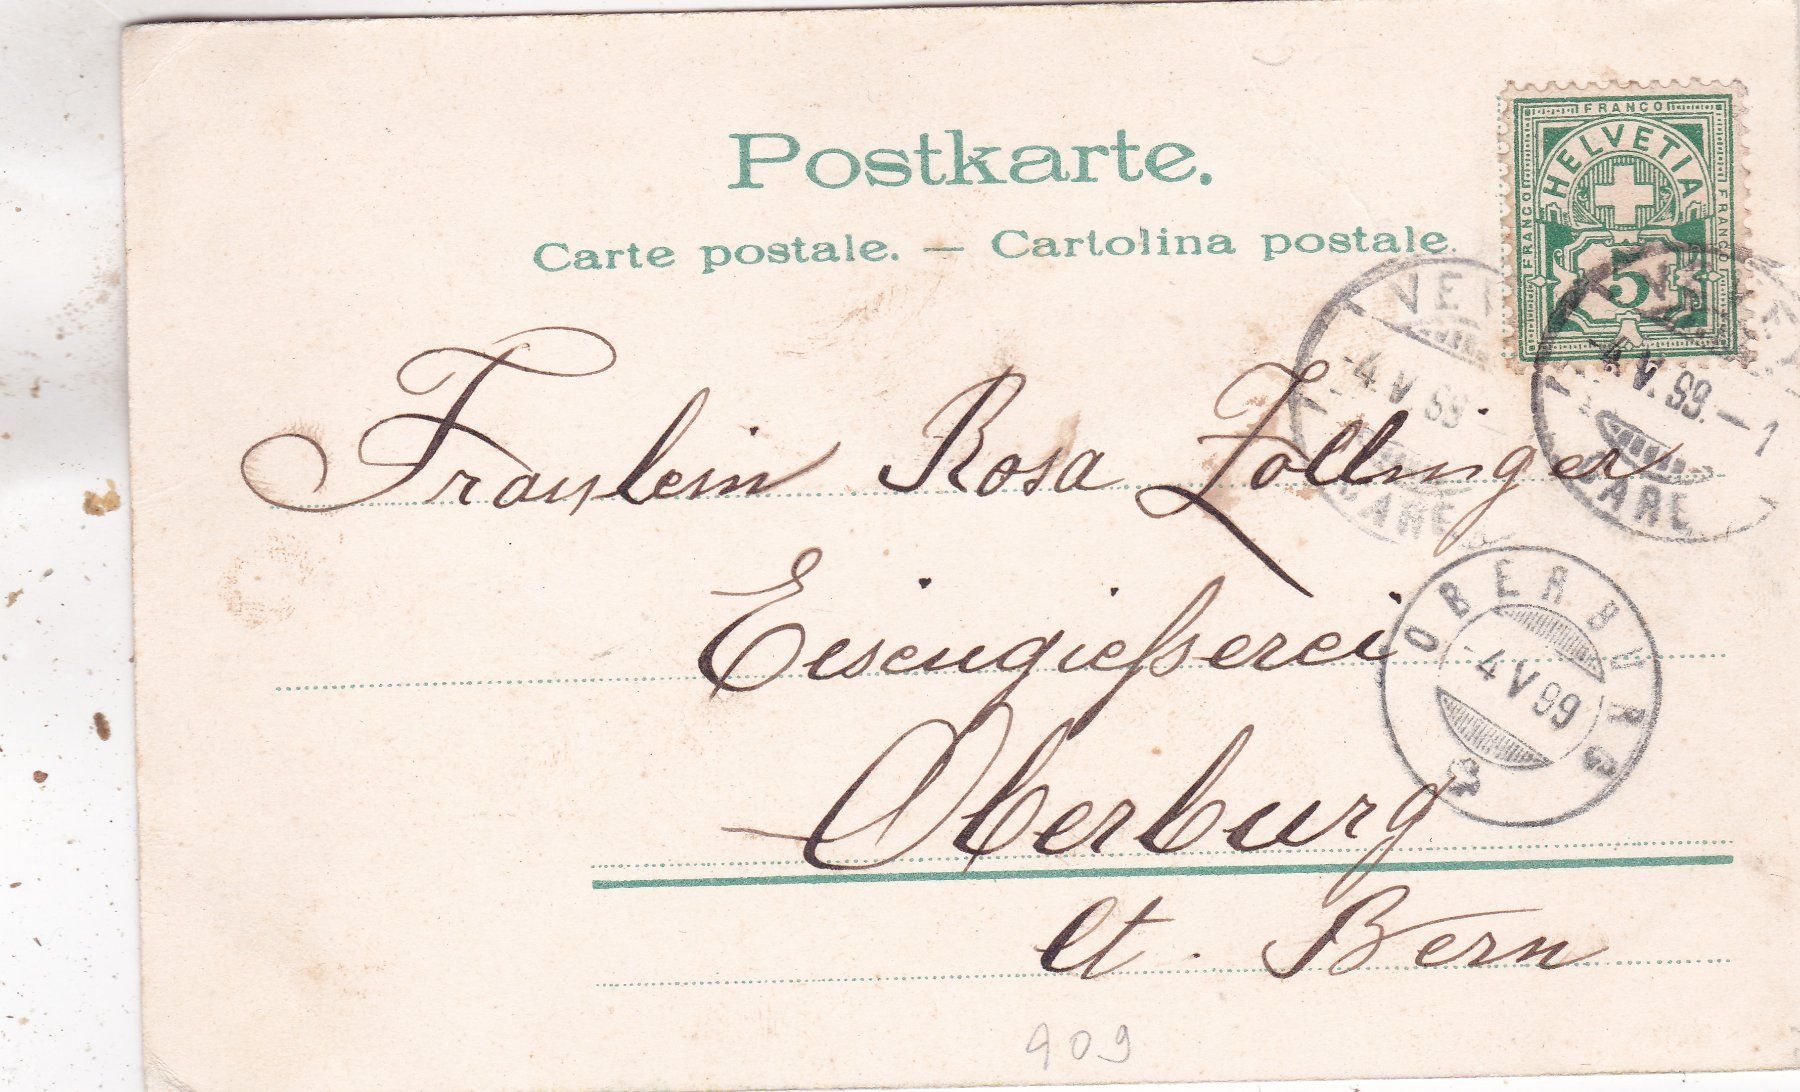 Postkarte.
Carte postale. — Cartolina postale.
FRANCO
FRANCO
FRANCO
HELVETIA
5
-4 V 99
GARE
-4 V. 99. — 1
GARE
Fräulein Rosa Zollinger
Eisengiesserei
OBERBURG
-4 V 99
Oberburg
Ct. Bern
909